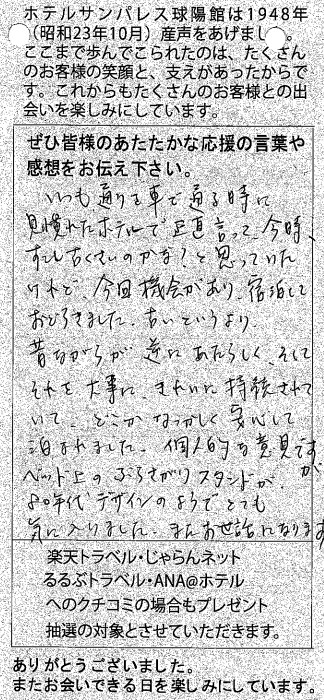 ホテルサンパレス球陽館は1948年
（昭和23年10月）産声をあげまし
ここまで歩んでこられたのは、たくさん
のお客様の笑顔と、支えがあったからで
す。これからもたくさんのお客様との出
会いを楽しみにしています。
ぜひ皆様のあたたかな応援の言葉や
感想をお伝え下さい。
いつも通りを車で通る時に
見慣れたホテルで正直言って、今時、
すこし古くさいのかな？と思っていた
けれど、今回機会があり、宿泊して
おどろきました。古いというより、
昔ながらが逆にあたらしく、そして
それを大事に、きれいに持続されて
いて、どこかなつかしく安心して
泊まれました。個人的な意見ですが
ベッド上のぶらさがりスタンドが、
80年代デザインのようでとても
気に入りました。またお世話になります
楽天トラベル・じゃらんネット
るるぶトラベル・ANA@ホテル
へのクチコミの場合もプレゼント
抽選の対象とさせていただきます。
ありがとうございました。
またお会いできる日を楽しみにしています。